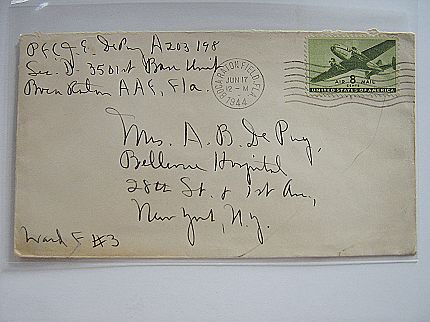 Pfc J. E. DePuy A203198
Sec. D- 3501st Base Unit
Boca Raton AAF, Fla.
BOCA RATON FIELD, FLA.
JUN 17
12-M
1944
AIR 8 MAIL
CENTS
UNITED STATES OF AMERICA
Mrs. A. B. DePuy,
Bellevue Hospital
28th St. & 1st Ave,
New York, N.Y.
Ward F #3